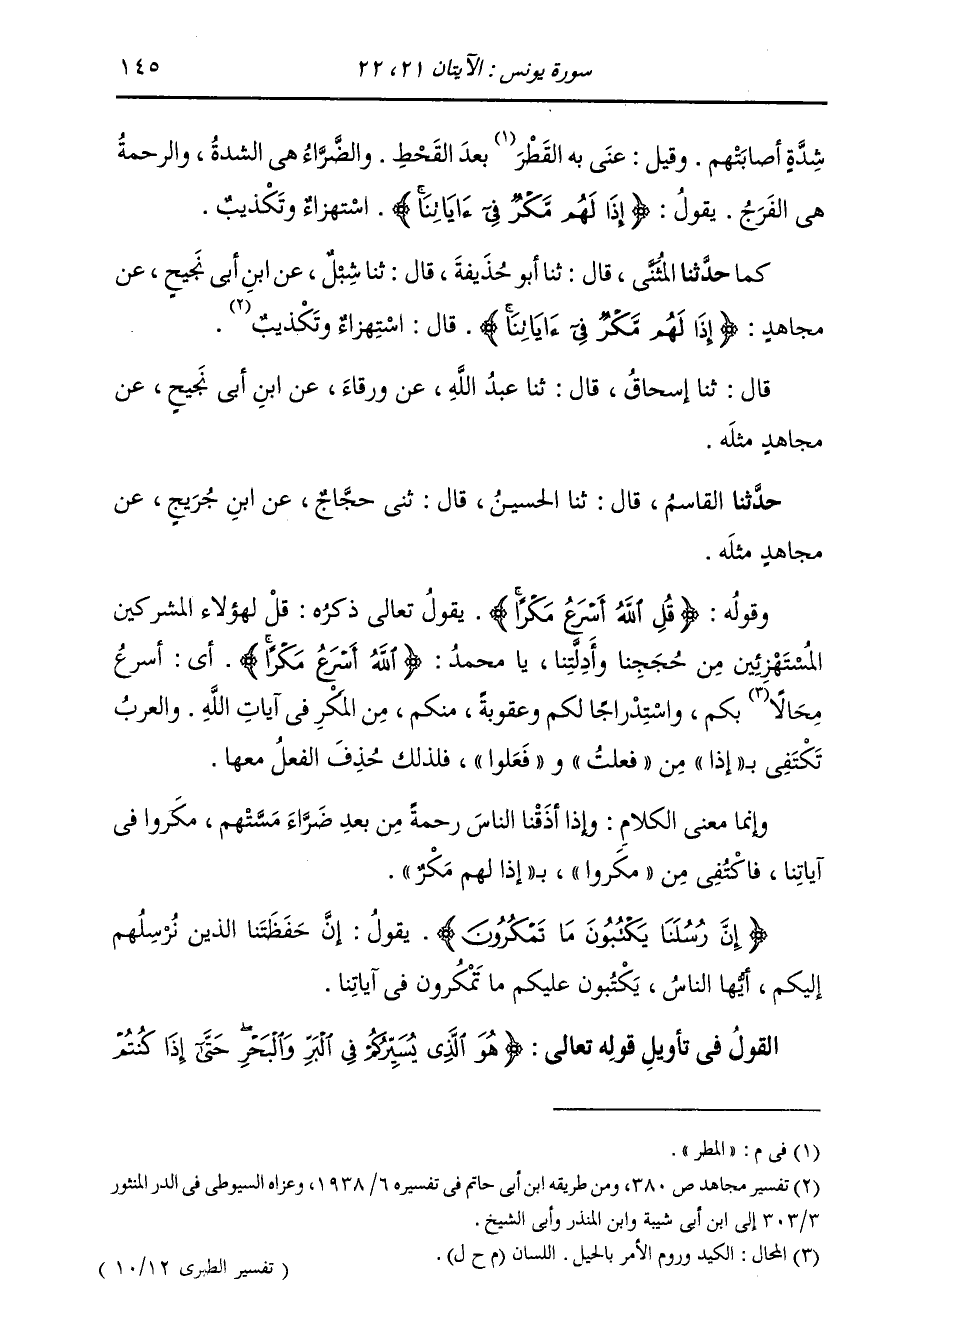 سورة يونس : الآيتان ٢١، ٢٢ ١٤٥
شِدَّةٍ أصابَتْهم . وقيل : عنَى به القَطْرَ(١) بعدَ القَحْطِ . والضَّرَّاءُ هى الشدةُ ، والرحمةُ
هى الفَرَجُ . يقولُ : ﴿ إِذَا لَهُم مَّكْرٌ فِىٓ ءَايَاتِنَاۚ ﴾ . اسْتهزاءٌ وتَكْذيبٌ .
كما حدَّثنا المُثَنَّى ، قال : ثنا أبو حُذَيفةَ ، قال : ثنا شِبْلٌ ، عن ابنِ أبى نَجيحٍ ، عن
مجاهدٍ : ﴿ إِذَا لَهُم مَّكْرٌ فِىٓ ءَايَاتِنَاۚ ﴾ . قال : اسْتِهزاءٌ وتَكْذيبٌ(٢) .
قال : ثنا إسحاقُ ، قال : ثنا عبدُ اللَّهِ ، عن ورقاءَ ، عن ابنِ أبى نَجيحٍ ، عن
مجاهدٍ مثلَه .
حدَّثنا القاسمُ ، قال : ثنا الحسينُ ، قال : ثنى حجَّاجٌ ، عن ابنِ جُرَيجٍ ، عن
مجاهدٍ مثلَه .
وقولُه : ﴿ قُلِ ٱللَّهُ أَسْرَعُ مَكْرًاۚ ﴾ . يقولُ تعالى ذكرُه : قلْ لهؤلاء المشركين
المُسْتَهْزِئين مِن حُجَجِنا وأَدِلَّتِنا ، يا محمدُ : ﴿ ٱللَّهُ أَسْرَعُ مَكْرًاۚ ﴾ . أى : أسرعُ
مِحَالًا(٣) بكم ، واسْتِدْراجًا لكم وعقوبةً ، منكم ، مِن المَكْرِ فى آياتِ اللَّهِ . والعربُ
تَكْتَفِى بـ« إذا » مِن « فعلتُ » و « فَعَلوا » ، فلذلك حُذِفَ الفعلُ معها .
وإنما معنى الكلامِ : وإذا أذَقْنا الناسَ رحمةً مِن بعدِ ضَرَّاءَ مَسَّتْهم ، مكَروا فى
آياتِنا ، فاكْتُفِى مِن « مكَروا » ، بـ« إذا لهم مَكْرٌ » .
﴿ إِنَّ رُسُلَنَا يَكْتُبُونَ مَا تَمْكُرُونَ ﴾ . يقولُ : إنَّ حفَظَتَنا الذين نُرْسِلُهم
إليكم ، أيُّها الناسُ ، يَكْتُبون عليكم ما تَمْكُرون فى آياتِنا .
القولُ فى تأويلِ قولِه تعالى : ﴿ هُوَ ٱلَّذِى يُسَيِّرُكُمْ فِى ٱلْبَرِّ وَٱلْبَحْرِۖ حَتَّىٰٓ إِذَا كُنتُمْ
(١) فى م : « المطر » .
(٢) تفسير مجاهد ص ٣٨٠، ومن طريقه ابن أبى حاتم فى تفسيره ٦/ ١٩٣٨، وعزاه السيوطى فى الدر المنثور
٣٠٣/٣ إلى ابن أبى شيبة وابن المنذر وأبى الشيخ .
(٣) المحال : الكيد وروم الأمر بالحيل . اللسان (م ح ل) .
( تفسير الطبرى ١٠/١٢ )